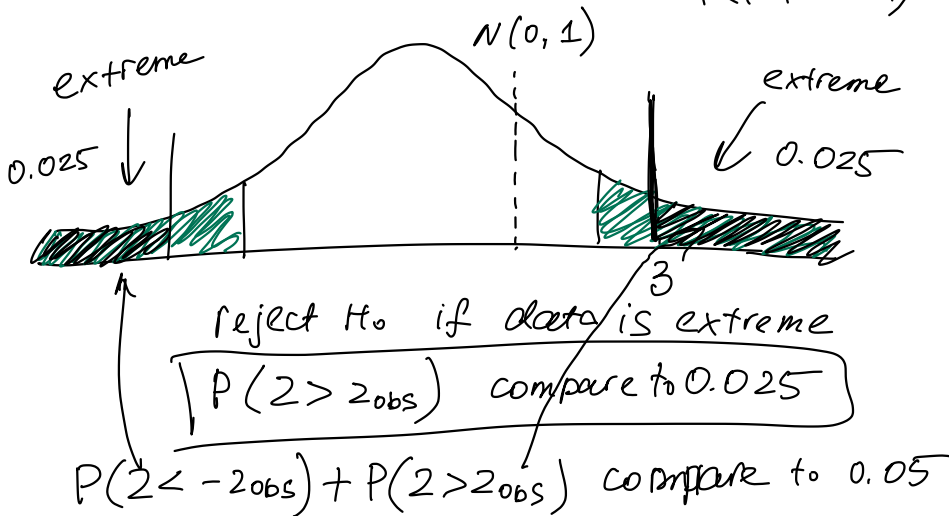 N(0, 1)
extreme
extreme
0.025
0.025
3
reject H₀ if data is extreme
P(Z > Z_obs) compare to 0.025
P(Z < -Z_obs) + P(Z > Z_obs) compare to 0.05